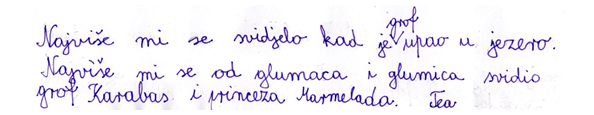 Najviše mi se svidjelo kad je grof upao u jezero.
Najviše mi se od glumaca i glumica svidio
grof Karabas i princeza Marmelada. Tea